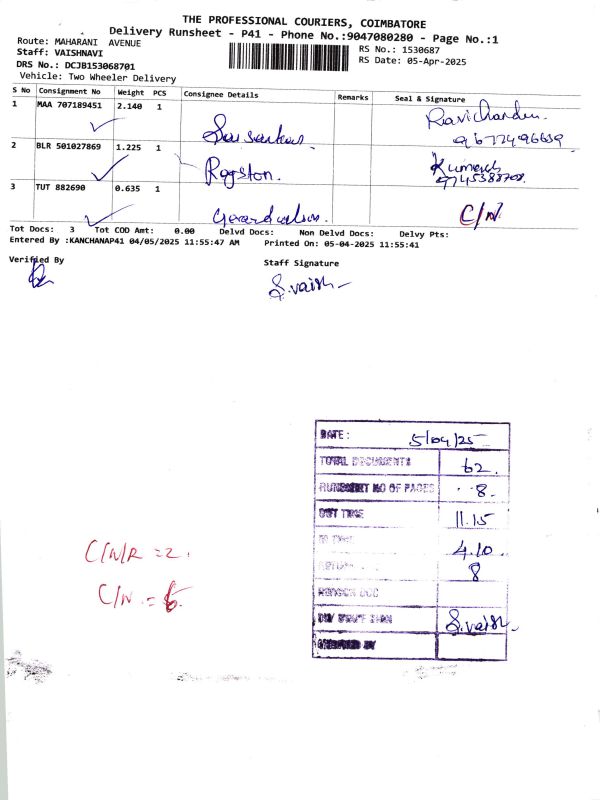 THE PROFESSIONAL COURIERS, COIMBATORE
Delivery Runsheet - P41 - Phone No.:9047080280 - Page No.:1
Route: MAHARANI AVENUE
Staff: VAISHNAVI
DRS No.: DCJB153068701
Vehicle: Two Wheeler Delivery
RS No.: 1530687
RS Date: 05-Apr-2025
S No Consignment No Weight PCS Consignee Details Remarks Seal & Signature
1 MAA 707189451 2.140 1 Ravichandran
2 BLR 501027869 1.225 1 Royston. Kumar
9745388708.
3 TUT 882690 0.635 1 C/N
Tot Docs: 3 Tot COD Amt: 0.00 Delvd Docs: Non Delvd Docs: Delvy Pts:
Entered By :KANCHANAP41 04/05/2025 11:55:47 AM Printed On: 05-04-2025 11:55:41
Verified By Staff Signature
S.vaish
DATE: 5/04/25
TOTAL DOCUMENTS 62.
RUNSHEET NO OF PAGES 8.
OUT TIME 11.15
IN TIME 4.10
8
C/N/R = 2.
C/N. = 6.
S.vaish.